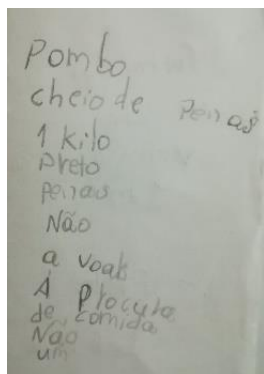 Pombo
cheio de Penas
1 kilo
Preto
penas
Não
a voar
Á Procura
de comida
Não
um